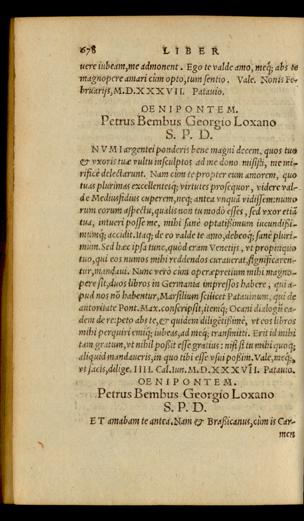 678 LIBER
uere iubeam, me admonent. Ego te valde amo, meq́; abs te
magnopere amari cùm opto, tum sentio. Vale. Nonis Fe-
bruarijs, M.D.XXXVII. Patauio.
OENIPONTEM.
Petrus Bembus Georgio Loxano
S. P. D.
NVMI argentei ponderis bene magni decem, quos tuo
& vxoris tuæ vultu insculptos ad me dono misisti, me mi-
rificè delectarunt. Nam cùm te propter eum amorem, quo
tuas plurimas excellentesq; virtutes prosequor, videre val-
de Mediusfidius cuperem, neq; antea vnquã vidissem: numo-
rum eorum aspectu, qualis non tu modò esses, sed vxor etiã
tua, intueri posse me, mihi sanè optatissimum iucundissi-
mumq; accidit. Itaq; de eo valde te amo, debeoq; sanè pluri-
mum. Sed hæc ipsa tunc, quòd eram Venetijs, vt propinquo
tuo, qui eos numos mihi reddendos curauerat, significaren-
tur, mandaui. Nunc verò cùm operæpretium mihi magno-
pere sit, duos libros in Germania impressos habere, qui a-
pud nos nõ habentur, Marsilium scilicet Patauinum, qui de
autoritate Pont. Max. conscripsit, itemq; Ocani dialogũ ea-
dem de re: peto abs te, & quidem diligētissimè, vt eos libros
mihi perquiri emiq; iubeas, ad meq; transmitti. Erit id mihi
tam gratum, vt nihil possit esse gratius: nisi si tu mihi quoq;
aliquid mandaueris, in quo tibi esse vsui possim. Vale, meq;,
vt facis, dilige. IIII. Cal. Iun. M.D.XXXVII. Patauio.
OENIPONTEM.
Petrus Bembus Georgio Loxano
S. P. D.
ET amabam te antea. Nam & Brassicanus, cùm is Car-
men